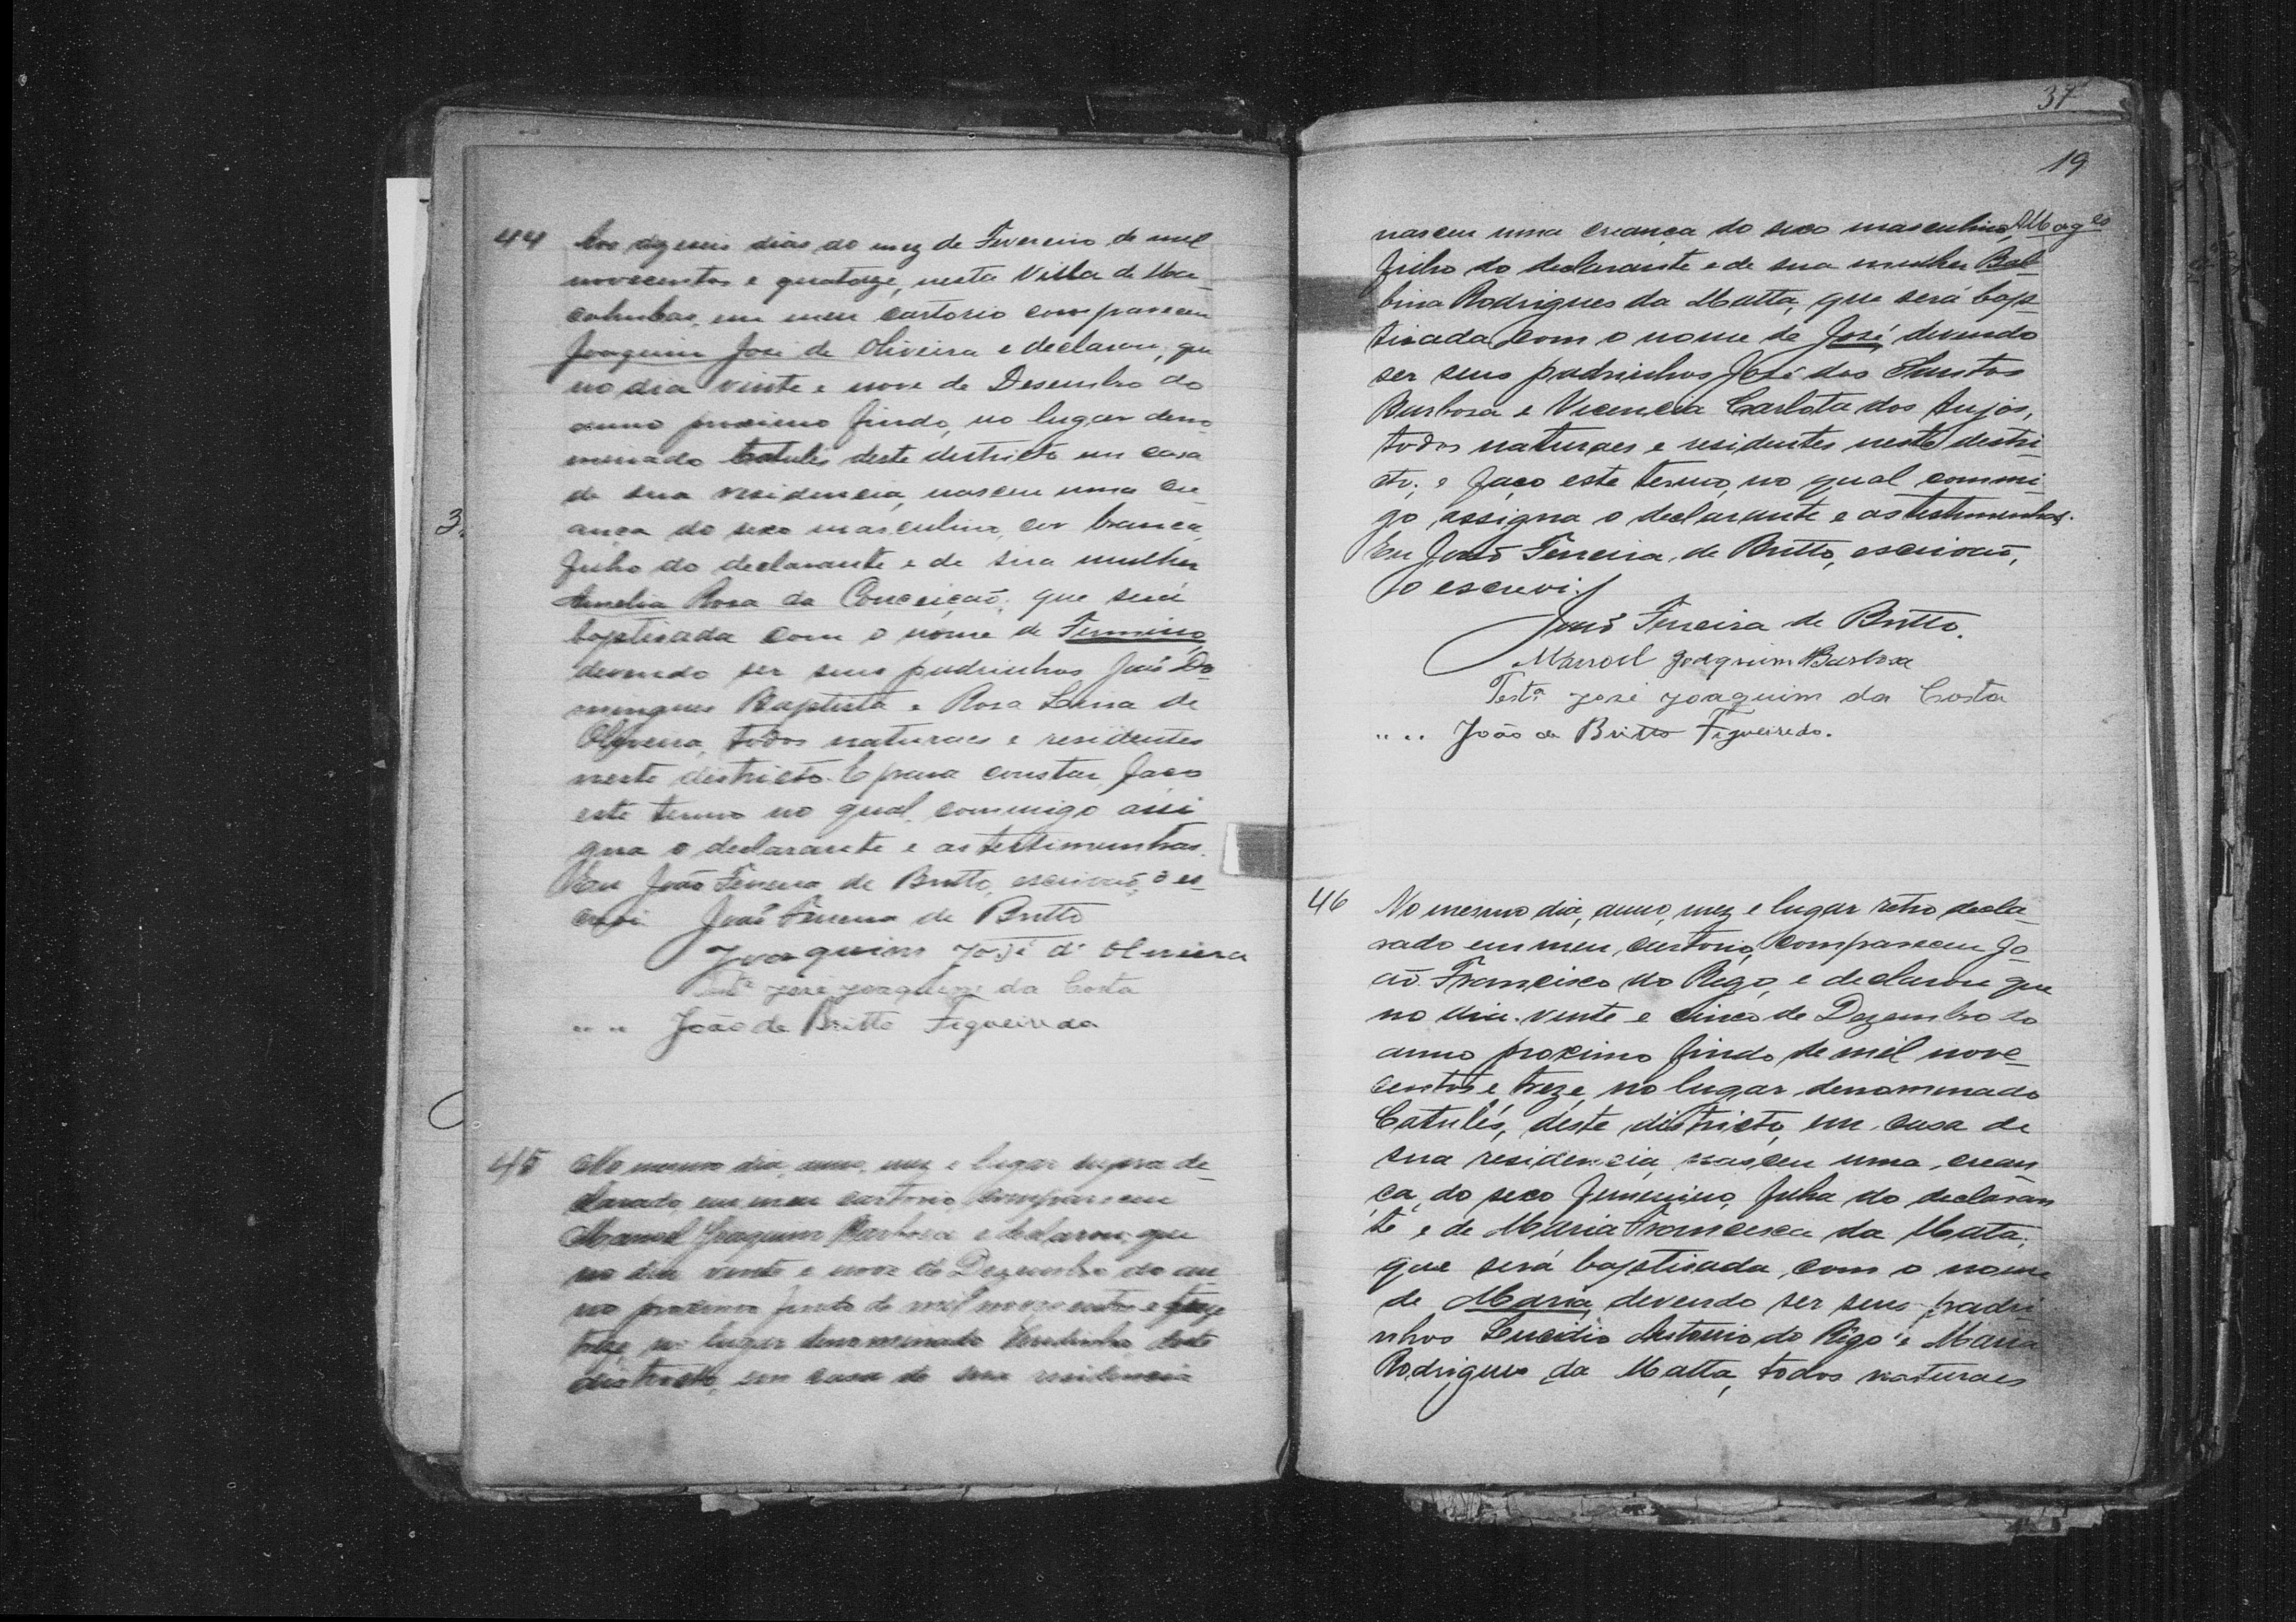 44 Aos dezeseis dias do mez de Fevereiro de mil
novecentos e quatorze, nesta Villa de Maca-
cahubas, em meu cartorio compareceu
Joaquim José de Oliveira e declarou, que
no dia vinte e nove de Desembro do
anno proximo findo, no lugar deno
menado Catulés deste districto em casa
de sua residencia, nasceu uma cre
ança do sexo masculino, cor branca,
filho do declarante e de sua mulher
Amelia Rosa da Conceição, que será
baptisada com o nome de Firmino,
devendo ser seus padrinhos João Do
mingues Baptista e Rosa Lina de
Oliveira, todos naturaes e residentes
neste districto. E para constar, faço
este termo no qual commigo assi
gna o declarante e as testimunhas.
Eu João Ferreira de Britto, escrivão, o es-
crevi João Ferreira de Britto
Joaquim José d' Oliveira
Testª José Joaquim da Costa
" " João de Britto Figueiredo
45 No mesmo dia, anno, mez e lugar supra de-
clarado, em meu cartorio, compareceu
Manoel Joaquim Barbosa e declarou, que
no dia vinte e nove de Dezembro do an
no proximo findo de mil novecentos e treze
treze no lugar denominado deste
districto, em casa de sua residencia
37
19
nasceu uma creança do sexo masculino,
filho do declarante e de sua mulher Bal
bina Rodrigues da Matta, que será bap-
tisada com o nome de José, devendo
ser seus padrinhos José dos Santos
Barbosa e Vicencia Carlota dos Anjos,
todos naturaes e residentes neste destri-
cto; e faço este termo, no qual commi-
go assigna o declarante e as testimunhas.
Eu João Ferreira de Britto, escrivão,
o escrevi.
João Ferreira de Britto.
Manoel Joaquim Barbosa
Testª José Joaquim da Costa
" " João de Britto Figueiredo.
46 No mesmo dia, anno, mez e lugar retro decla-
rado em meu cartorio, compareceu Jo-
ão Francisco do Rego, e declarou que
no dia vinte e cinco de Dezembro do
anno proximo findo de mil nove-
centos e treze, no lugar denominado
Catulés, deste districto, em casa de
sua residencia, nasceu uma crean
ça, do sexo femenino, filha do declaran
te e de Maria Francisca da Mata,
que será baptisada com o nome
de Maria, devendo ser seus padri
nhos Lucidio Antonio do Rêgo e Maria
Rodrigues da Matta, todos naturaes